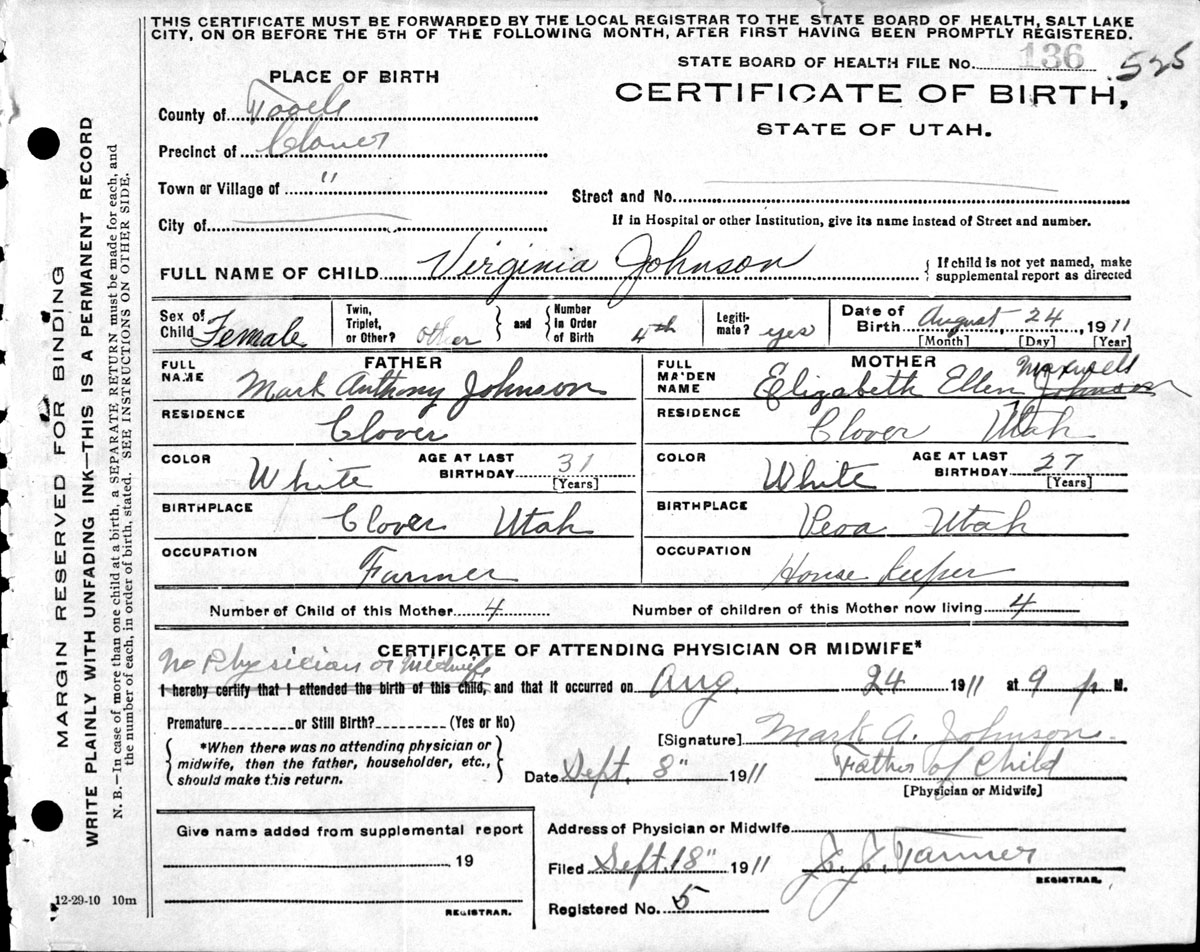 THIS CERTIFICATE MUST BE FORWARDED BY THE LOCAL REGISTRAR TO THE STATE BOARD OF HEALTH, SALT LAKE
CITY, ON OR BEFORE THE 5TH OF THE FOLLOWING MONTH, AFTER FIRST HAVING BEEN PROMPTLY REGISTERED.
STATE BOARD OF HEALTH FILE No. 136 525
PLACE OF BIRTH
CERTIFICATE OF BIRTH,
STATE OF UTAH.
County of Tooele
Precinct of Clover
Town or Village of "
Street and No.
City of
If in Hospital or other Institution, give its name instead of Street and number.
FULL NAME OF CHILD Virginia Johnson
{ If child is not yet named, make
supplemental report as directed
Sex of Child Female
Twin, Triplet, or Other? other } and { Number In Order of Birth 4th
Legiti- mate? yes
Date of Birth August 24 1911
[Month] [Day] [Year]
FATHER
FULL NAME Mark Anthony Johnson
RESIDENCE Clover
COLOR White AGE AT LAST BIRTHDAY 31 [Years]
BIRTHPLACE Clover Utah
OCCUPATION Farmer
MOTHER
FULL MAIDEN NAME Elizabeth Ellen Maxwell Johnson
RESIDENCE Clover Utah
COLOR White AGE AT LAST BIRTHDAY 27 [Years]
BIRTHPLACE Utah
OCCUPATION House Keeper
Number of Child of this Mother 4 Number of children of this Mother now living 4
CERTIFICATE OF ATTENDING PHYSICIAN OR MIDWIFE*
No Physician or Midwife
I hereby certify that I attended the birth of this child, and that it occurred on Aug. 24 1911 at 9 p M.
Premature or Still Birth? (Yes or No)
{ *When there was no attending physician or
midwife, then the father, householder, etc.,
should make this return. }
[Signature] Mark A. Johnson
Date Sept. 8" 1911 Father of Child
[Physician or Midwife]
Give name added from supplemental report
19
REGISTRAR.
Address of Physician or Midwife
Filed Sept. 18" 1911 J. J. Tanner
REGISTRAR.
Registered No. 5
12-29-10 10m
MARGIN RESERVED FOR BINDING
WRITE PLAINLY WITH UNFADING INK—THIS IS A PERMANENT RECORD
N. B.—In case of more than one child at a birth, a SEPARATE RETURN must be made for each, and
the number of each, in order of birth, stated. SEE INSTRUCTIONS ON OTHER SIDE.